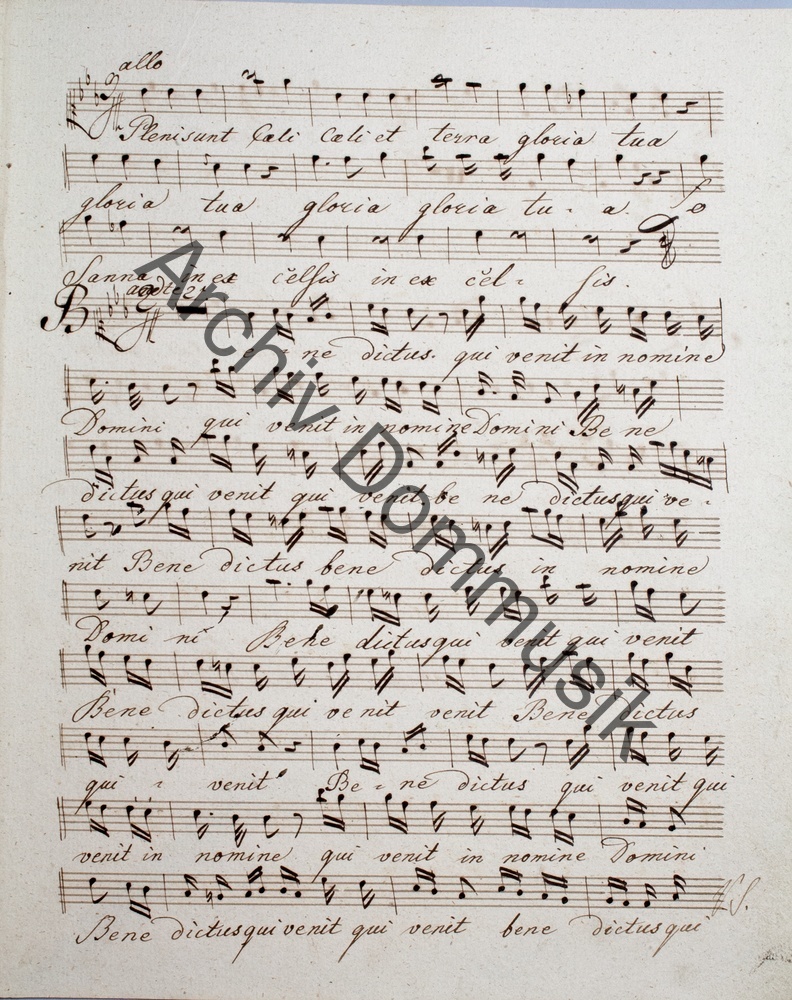 allo
Pleni sunt Cæli Cæli et terra gloria tua
gloria tua gloria gloria tu - a. fo
Sanna in ex cělsis in ex cěl - sis.
andte 2
Be - ne dictus. qui venit in nomine
Domini qui venit in nomine Domini Be ne
dictus qui venit qui venit. be ne dictus qui ve -
nit Bene dictus bene dictus in nomine
Domi ni Bene dictus qui venit qui venit
Bene dictus qui venit venit Bene dictus
qui - venit Be - ne dictus qui venit qui
venit in nomine qui venit in nomine Domini
Bene dictus qui venit qui venit bene dictus qui
V.S.
Archiv Dommusik